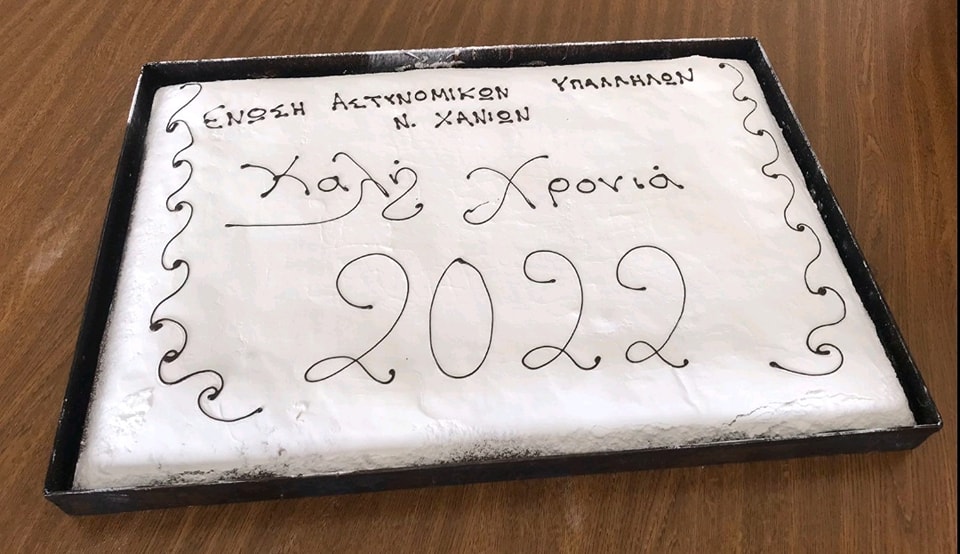 ΕΝΩΣΗ ΑΣΤΥΝΟΜΙΚΩΝ ΥΠΑΛΛΗΛΩΝ
Ν. ΧΑΝΙΩΝ
Καλή Χρονιά
2022